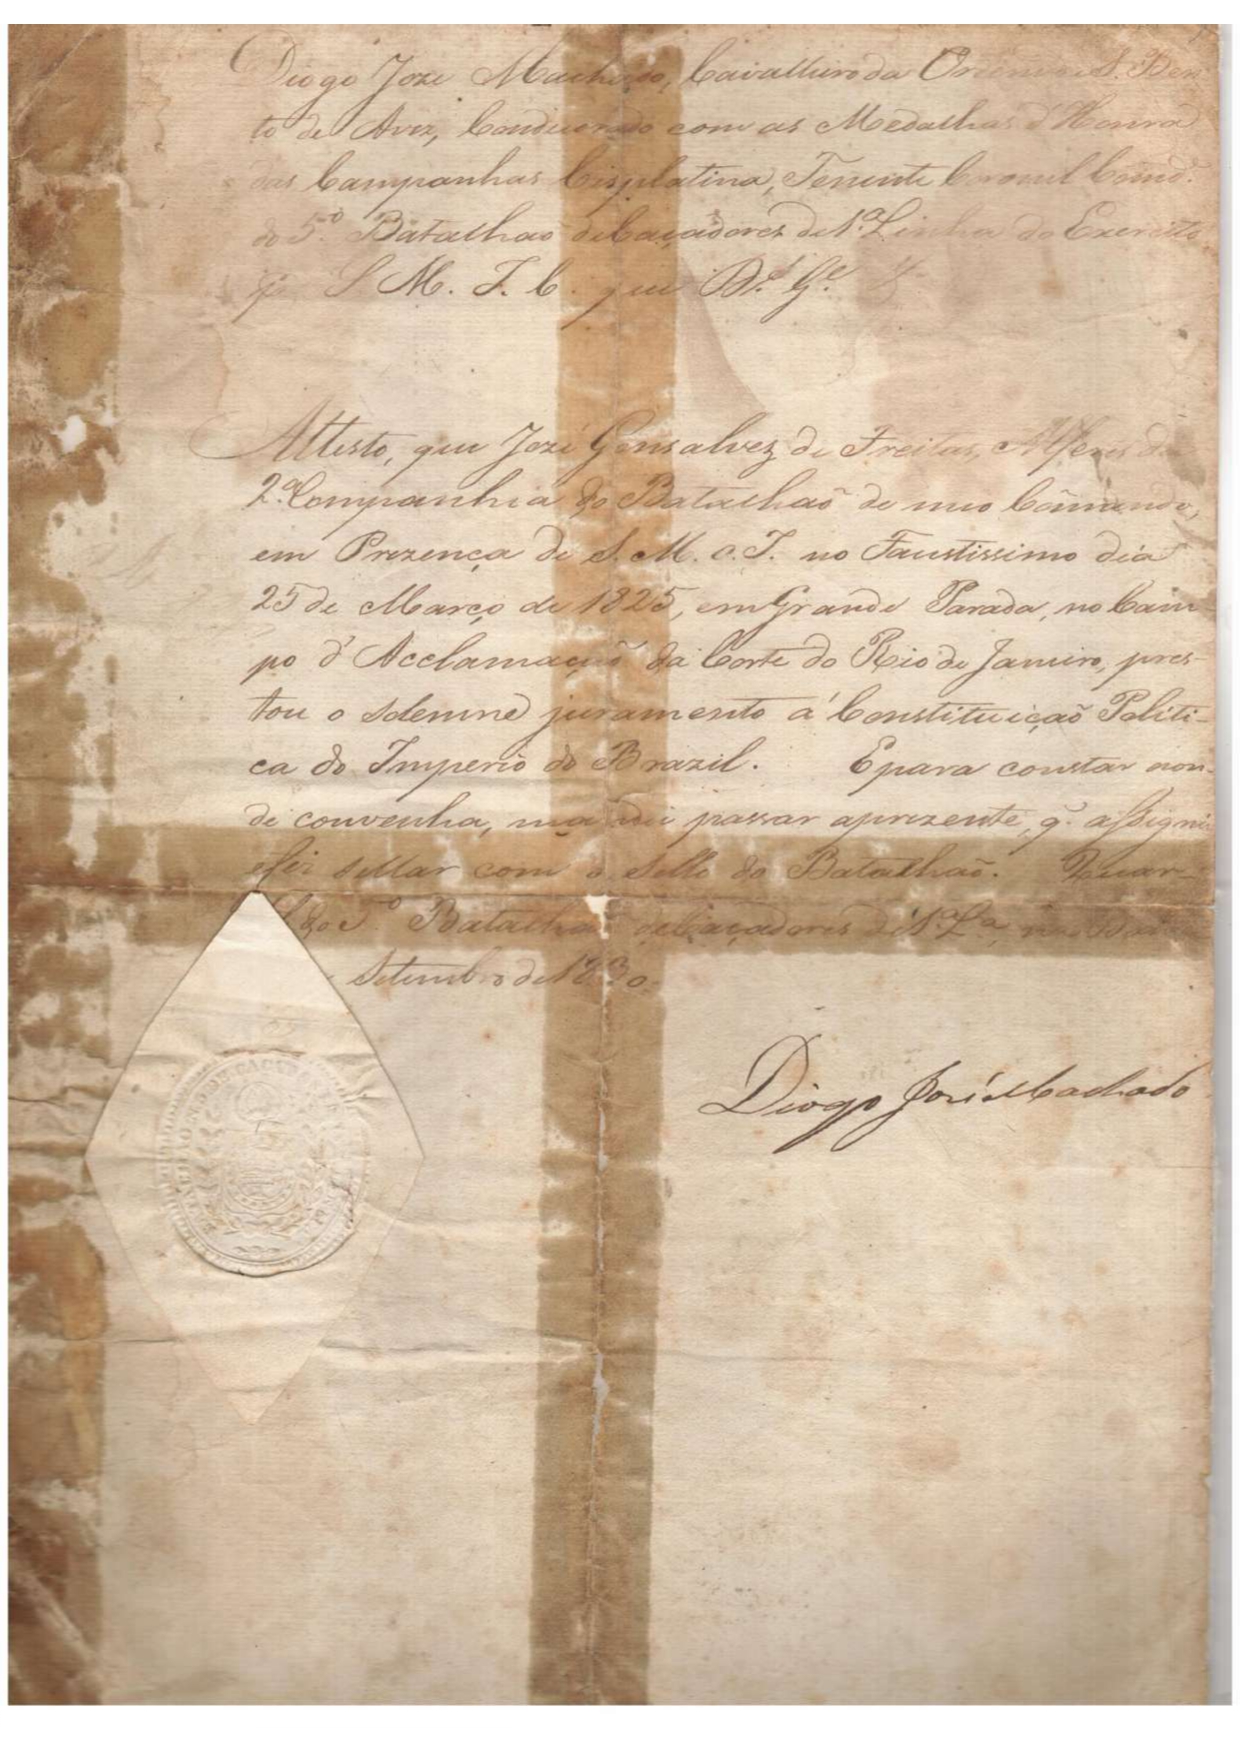 Diogo Joze Machado, Cavalleiro da Ordem de S. Ben
to de Aviz, Condecorado com as Medalhas d'Honra
das Campanhas Cisplatina, Tenente Coronel Comd.e
do 5.º Batalhaõ de Caçadores de 1.ª Linha do Exercito
por S. M. I. C. que D.s G.e &
Attesto, que Joze Gonsalvez de Freitas, Alferes da
2.ª Companhia do Batalhaõ de meo Cõmando,
em Prezença de S. M. o. I. no Faustissimo dia
25 de Março de 1825, em Grande Parada, no Cam
po d'Acclamaçaõ da Corte do Rio de Janeiro, pres-
tou o solemne juramento á Constituiçaõ Politi-
ca do Imperio do Brazil. E para constar aon-
de convenha, mandei passar aprezente, q. assignei
efiz sellar com o Sello do Batalhaõ. Quar-
tel do 5.º Batalhaõ de Caçadores de 1.ª L.a, na
Setembro de 1830.
Diogo José Machado